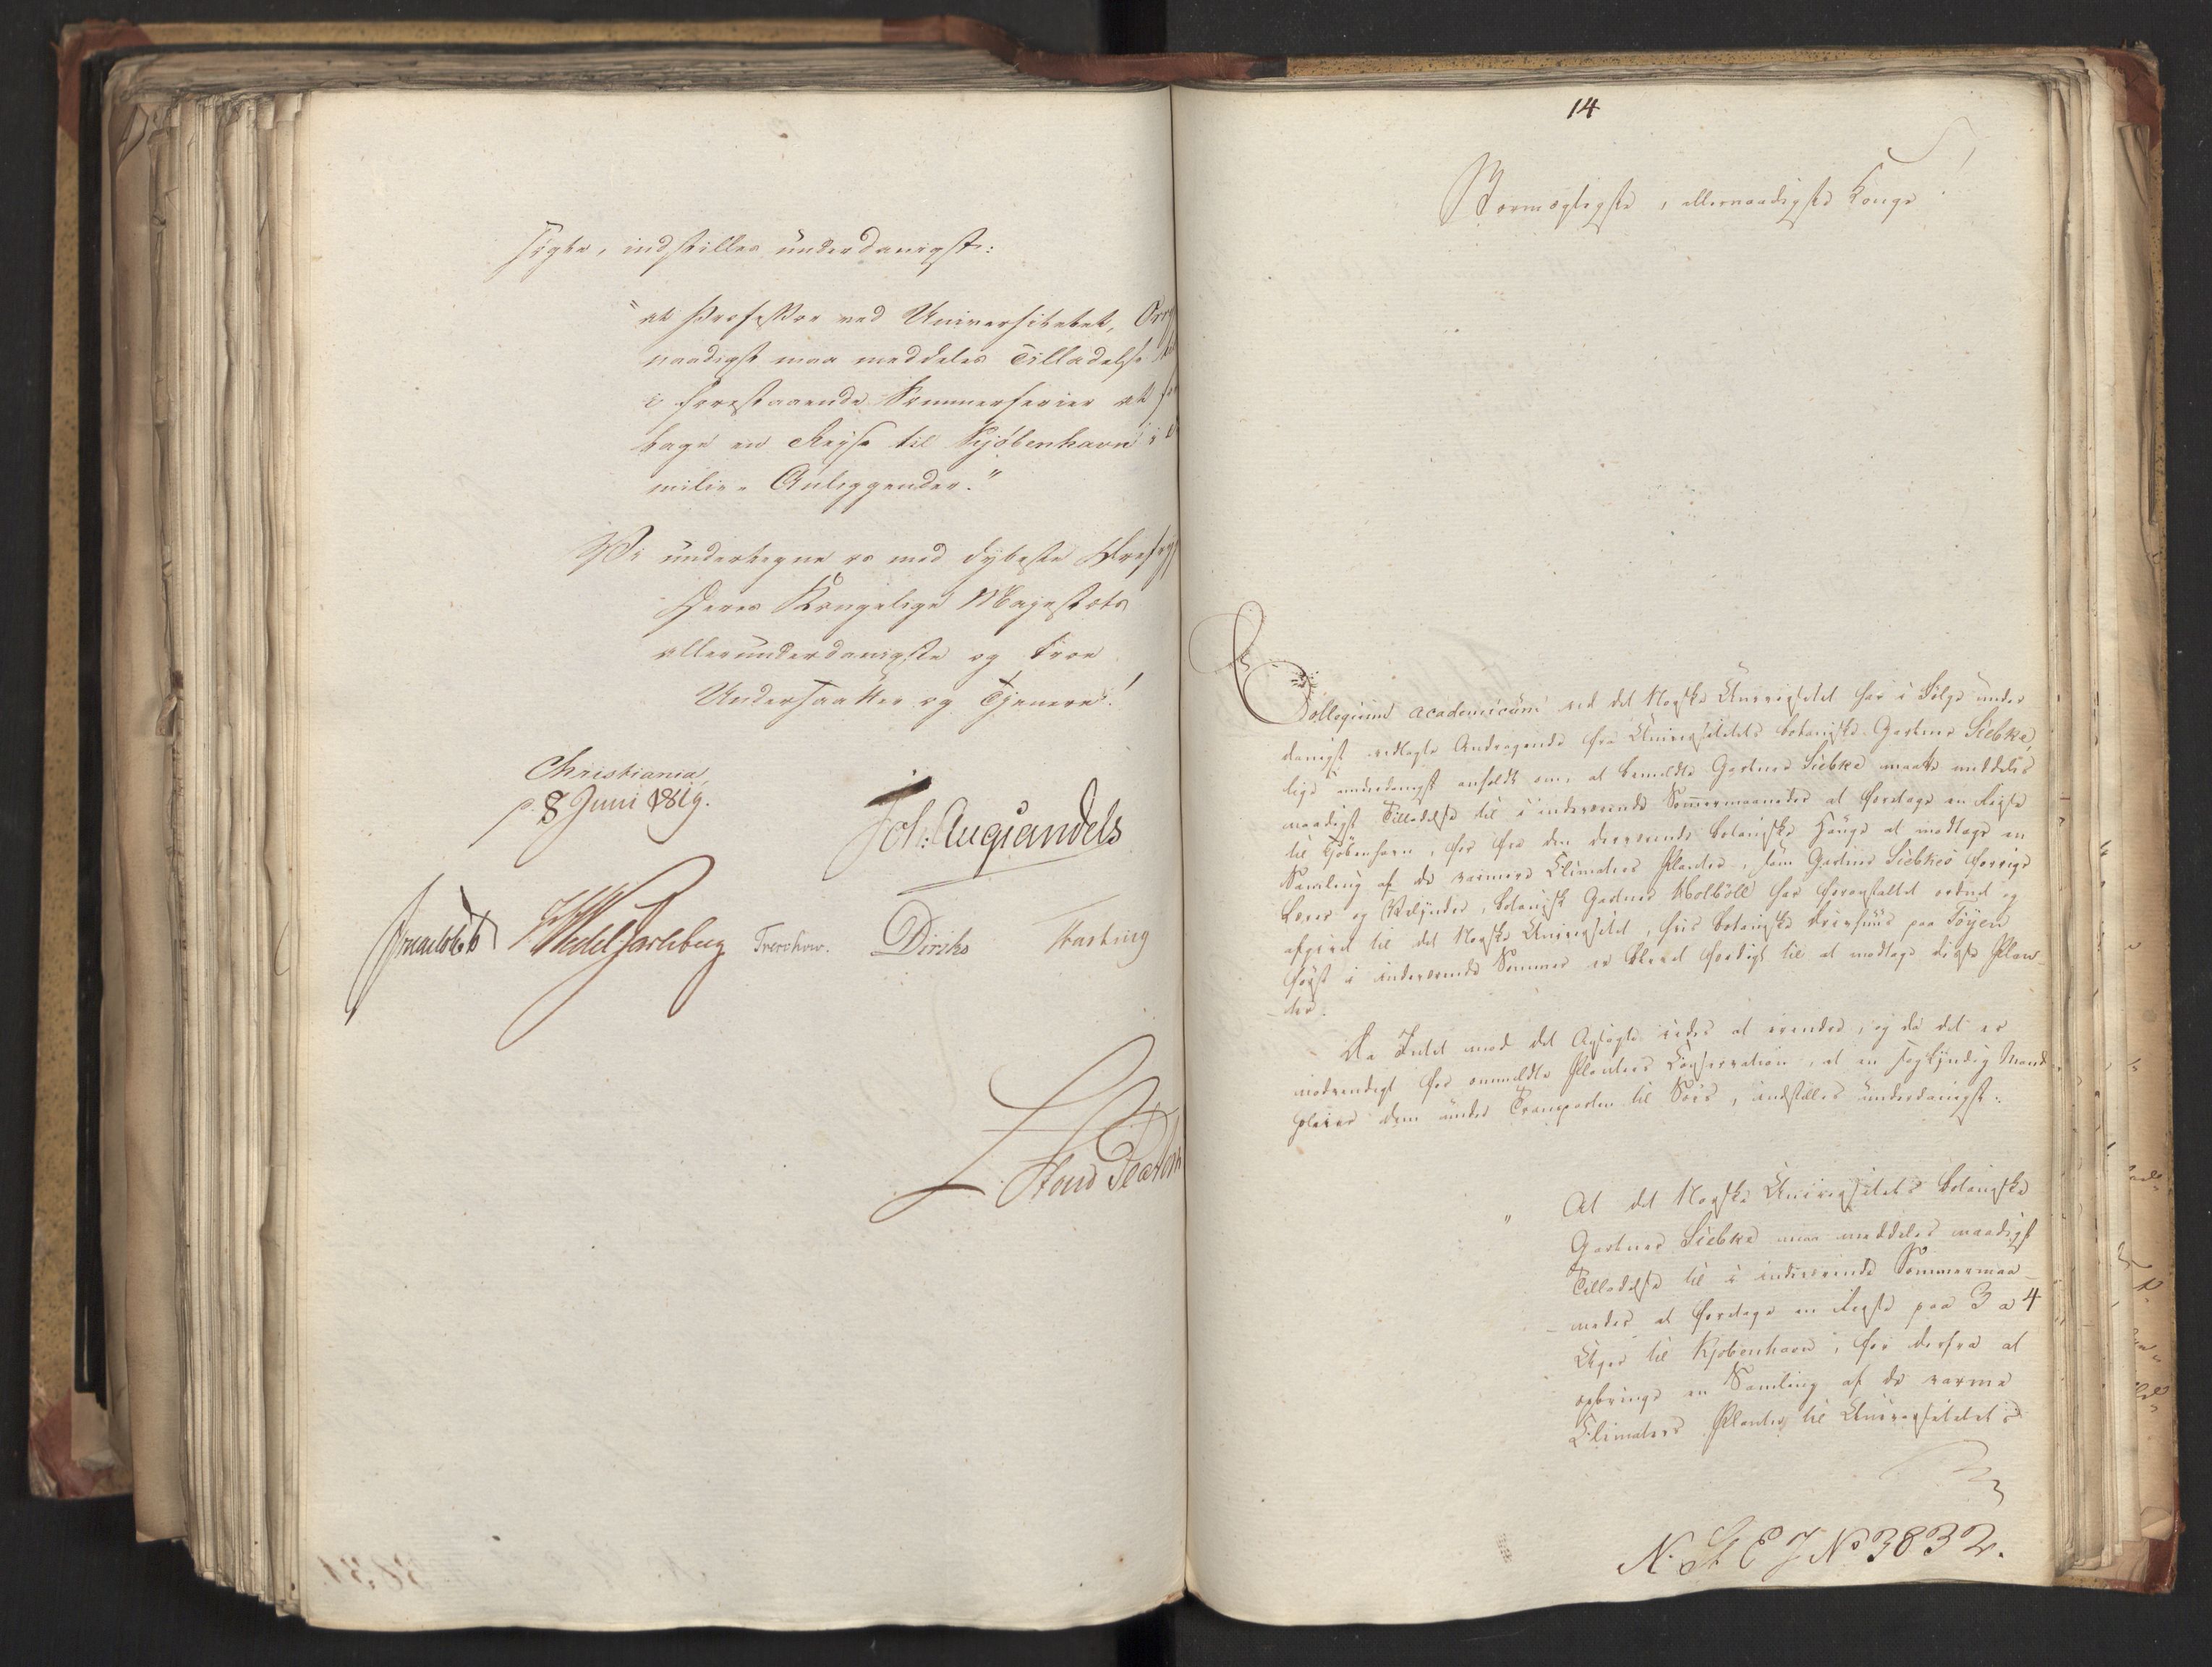 søgte, indstilles underdanigst:
"at Professor ved Universitetet,
naadigst maa meddeles Tilladelse til
i forestaaende Sommerferier at fo
tage en Reyse til Kjöbenhavn i
milie-Anliggender."
Vi undertegne os med dybeste Ærefrygt
Deres Kongelige Majestæts
allerunderdanigste og troe
Undersaatter og Tjenere!
Christiania
p. 8 Juni 1819.
Joh: Aug: Sandels
WedelJarlsberg Treschow. Diriks Hasting
14
Stormægtigste, allernaadigste Konge!
Collegium academicum ved det Norske Universitet har i Følge under
danigst vedlagte Andragende fra Universitetets botaniske Gartner Siebke,
lige underdanigst anholdt om, at bemeldte Gartner Siebke maatte meddeles
naadigst Tilladelse til i indeværende Sommermaaneder at foretage en Reyse
til Kjöbenhavn, for fra den derværende botaniske Hauge at modtage en
Samling af de varmere Climaters Planter, som Gartner Siebkes forrige
Lærer og Velynder, botanisk Gartner Holböll har foranstaltet ordnet og
afgivet til det Norske Universitet, hvis botaniske Drivhuus paa Töyen
først i indeværende Sommer er blevet færdigt til at modtage disse Plan-
-ter.
Da Intet mod det Ansøgte vides at erindre, og da det er
nødvendigt for ommeldte Planters Conservation, at en sagkyndig Mand
pleier dem under Transporten til Søes, indstilles underdanigst:
" At det Norske Universitets botaniske
Gartner Siebke maa meddeles naadigst
Tilladelse til i indeværende Sommermaa-
-neder at foretage en Reyse paa 3 a 4
Uger til Kjöbenhavn, for derfra at
opbringe en Samling af de varme
Climaters Planter til Universitetets
N. St E J No 3832.